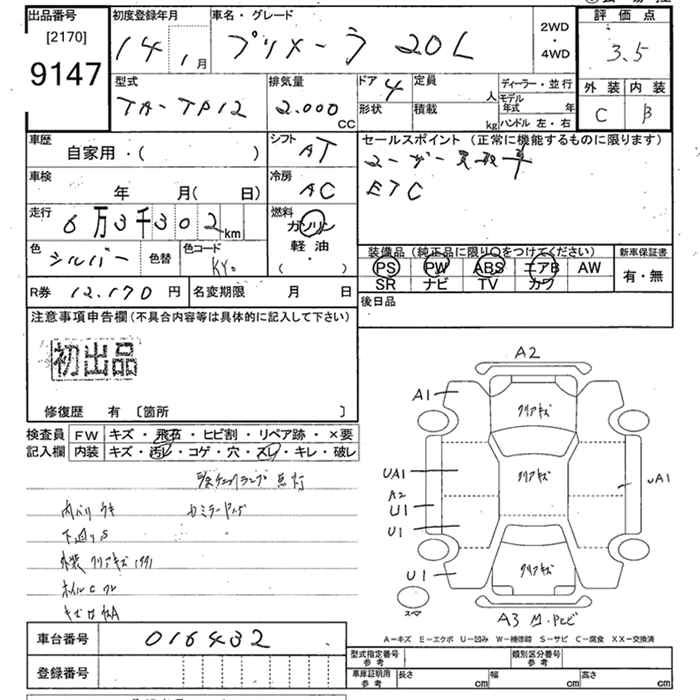 出品番号 初度登録年月 車名・グレード 評価点
[2170]
9147
14 1月 プリメーラ 20L
2WD
・
4WD
3.5
型式 排気量 ドア 4 定員 人 ディーラー・並行 外装 内装
TA-TP12 2.000 CC 形状 積載 kg モデル年式 年 C B
ハンドル 左・右
車歴 シフト セールスポイント (正常に機能するものに限ります)
自家用・( ) AT ユーザー買取車
車検 冷房 ETC
年 月( 日) AC
走行 6万3千302km 燃料
ガソリン
色 シルバー 色替 色コード KY0 軽油・
( )
装備品(純正品に限り○をつけてください) 新車保証書
PS PW ABS エアB AW 有・無
SR ナビ TV カワ
R券 12.170円 名変期限 月 日 後日品
注意事項申告欄(不具合内容等は具体的に記入して下さい)
初出品
修復歴 有 〔箇所 〕
検査員 FW キズ・飛石・ヒビ割・リペア跡・×要
記入欄 内装 キズ・汚レ・コゲ・穴・スレ・キレ・破レ
点灯
下廻りS
A2
A1
クリアキズ
クリアキズ
UA1 UA1
A2
U1
U1
クリアキズ
U1
スペア
A3
A−キズ E−エクボ U−凹み W−補修跡 S−サビ C−腐食 XX−交換済
車台番号 016432
登録番号
型式指定番号 参考 類別区分番号 参考
車庫証明用 参考 長さ cm 幅 cm 高さ cm